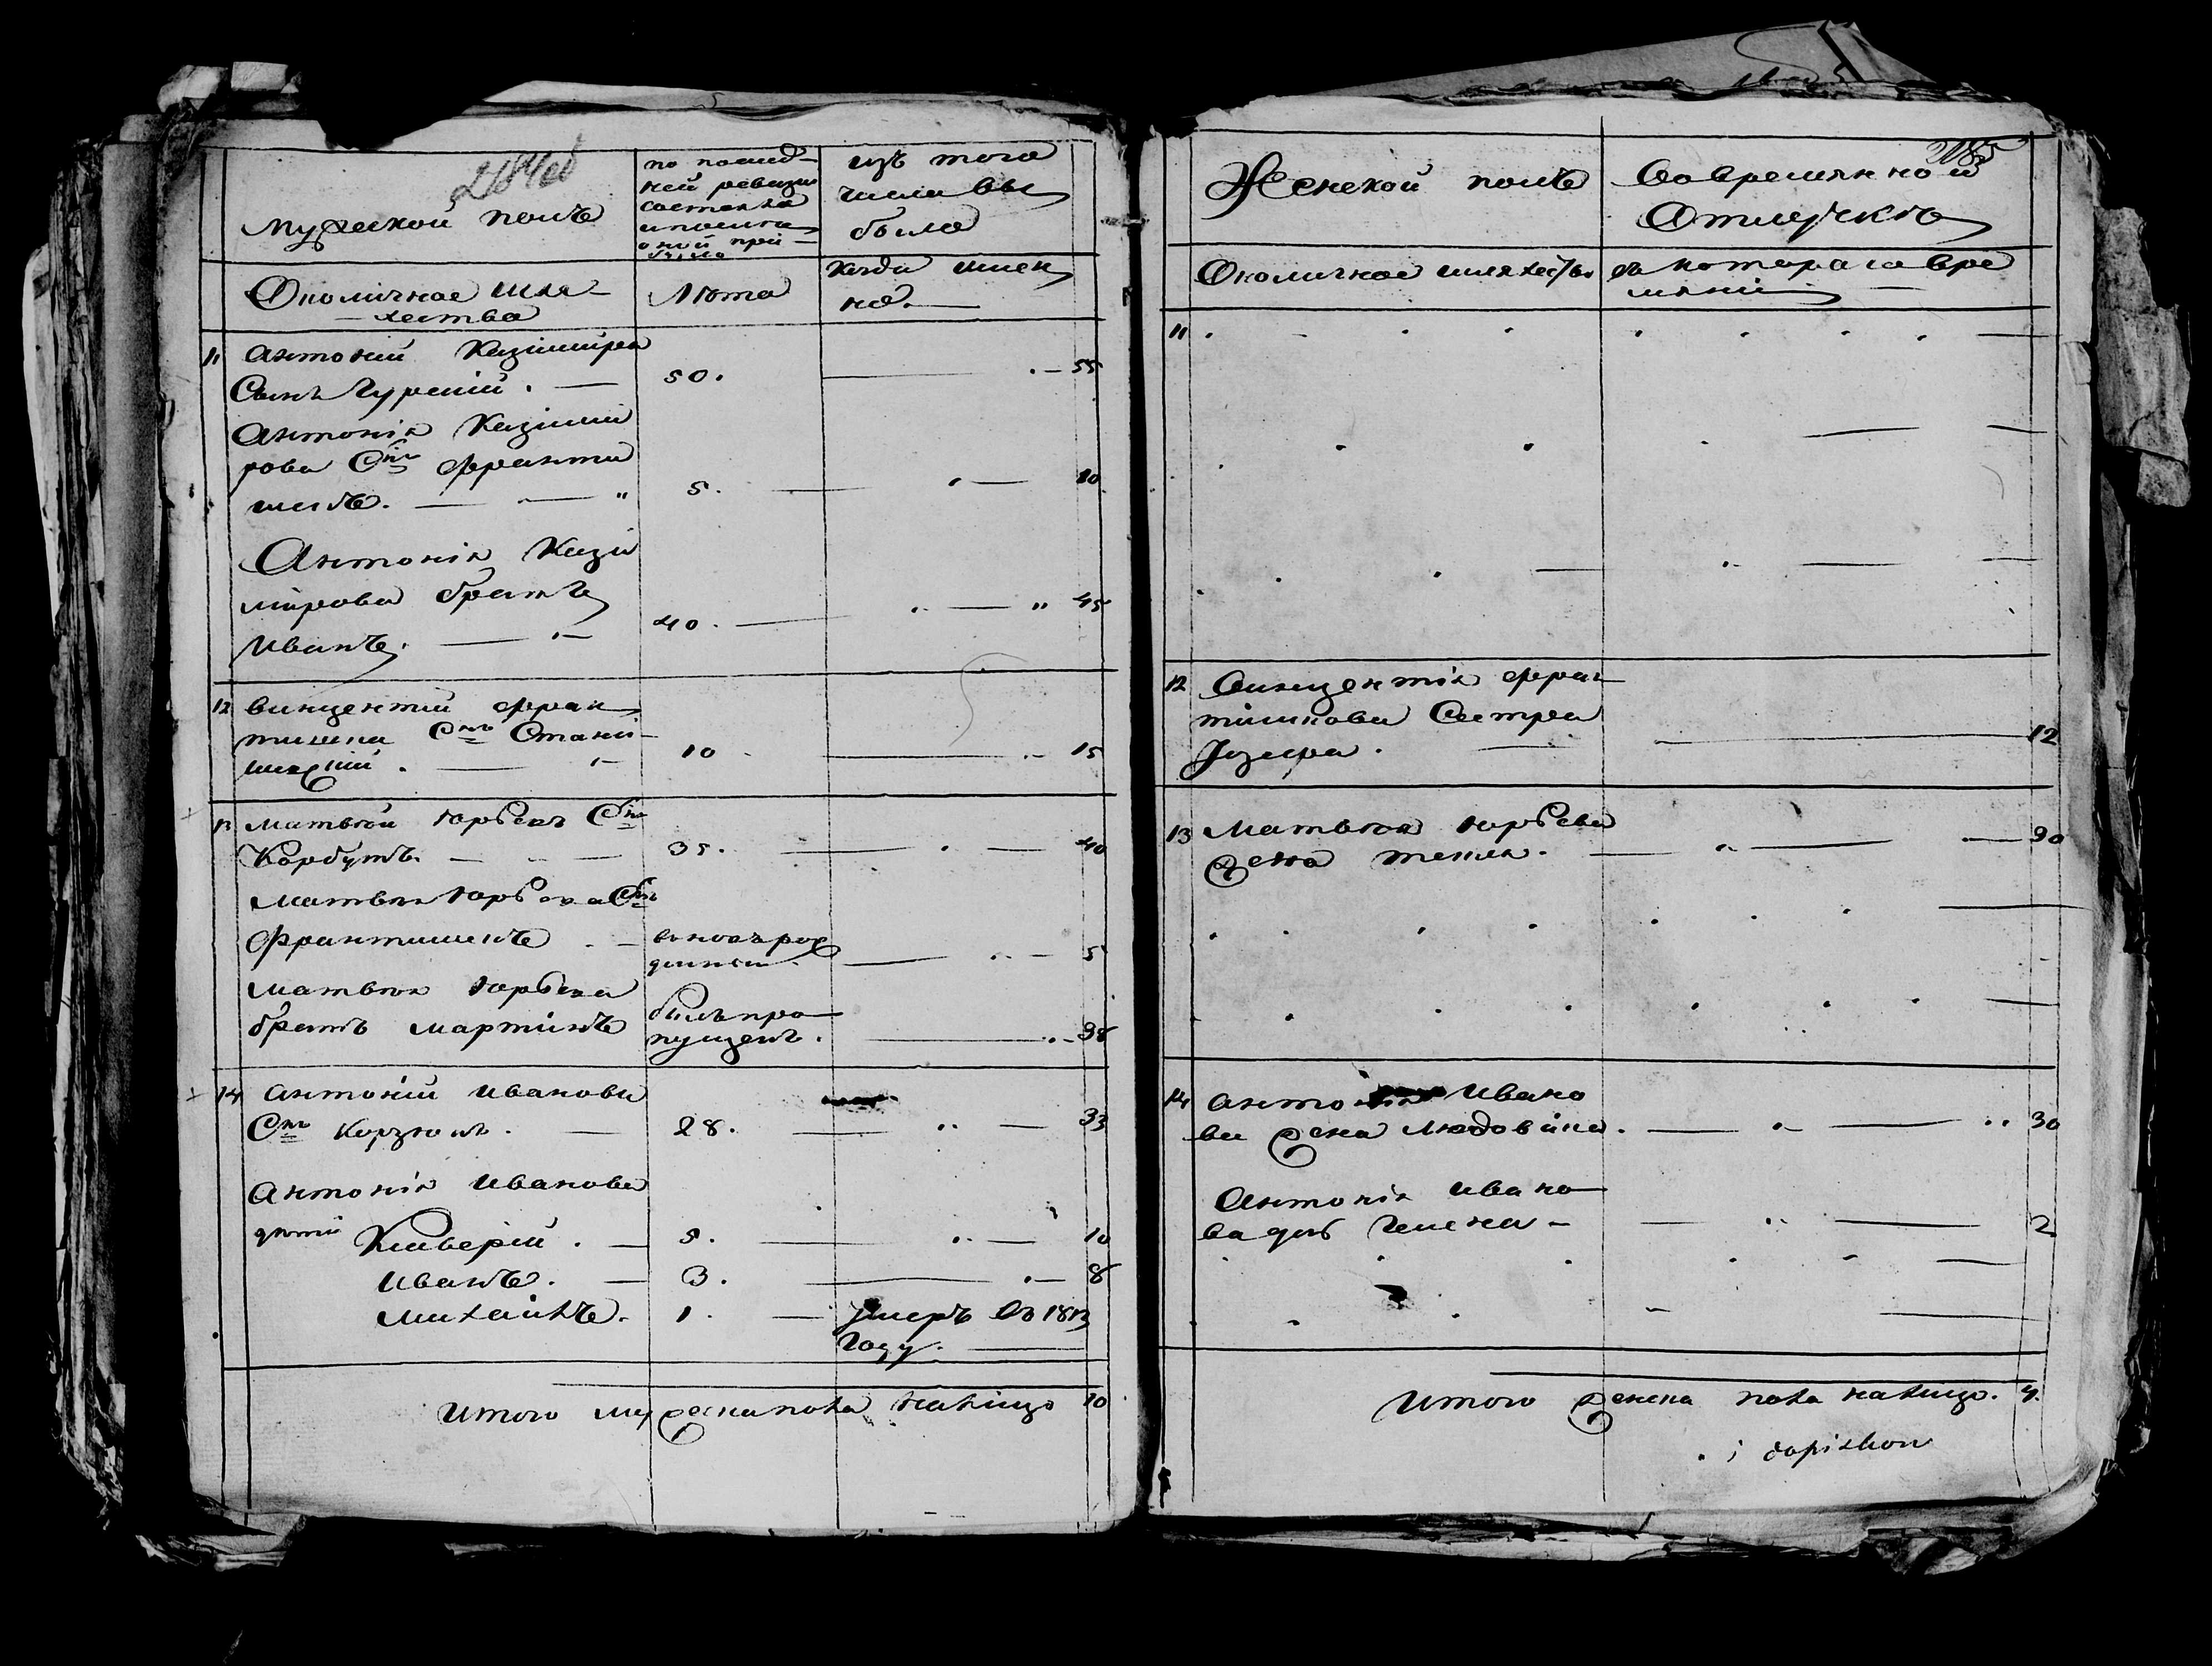 284об
Мужеской полъ
по послед-
ней ревизіи
состояло
и после
оной при-
было
изъ того
числа вы
было
Околичное шля-
хества
Лѣта
когда имен
но.
11 Антоній Казимира
Сынъ Гурскій . — 50. — 55
Антонія Казими
рова Снъ Франти
шекъ. — 5. — 10
Антонія Кази
мірова братъ
Иванъ. — 40. — 45
12 Винцентий Фран
тишка Снъ Стани
шевскій . — 10 — 15
13 Матвѣй Юрьевъ Снъ
Корбутъ. — 35. — 40
Матвѣя Юрьева Снъ
Франтишекъ . — вновь рож
денный . — 5
Матвѣя Юрьева
братъ Мартинъ былъ про
пущенъ . — 38
14 Антоній Иванова
Снъ Корзюкъ . — 28. — 33
Антонія Иванова
дѣти Ксаверій . — 5. — 10
Иванъ. — 3. — 8
Михайлъ. 1. — умеръ въ 1813
году. —
Итого мужеска пола налицо 10
285
Женской полъ
Во времянной
Отлучкѣ
Околичное шляхество
съ котораго вре
мяни —
11
12 Винцентія Фран
тишкова Сестра
Юзефа . — 12
13 Матвѣя Юрьева
жена Текля. — 30
14 Антонія Ивано
ва жена Людовика. — 30
Антонія Ивано
ва дочь Елена — 2
Итого женска пола налицо. 4.